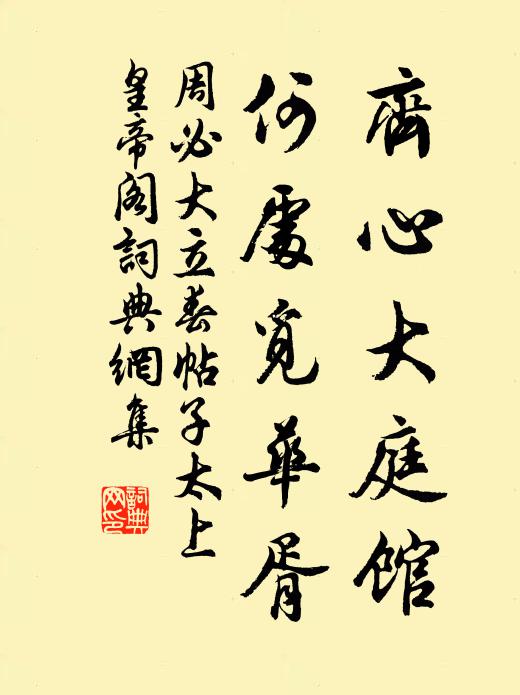 齊心大庭館
何處覓華胥
周必大立春帖子太上
皇帝閣詞典網集
詞典
网印